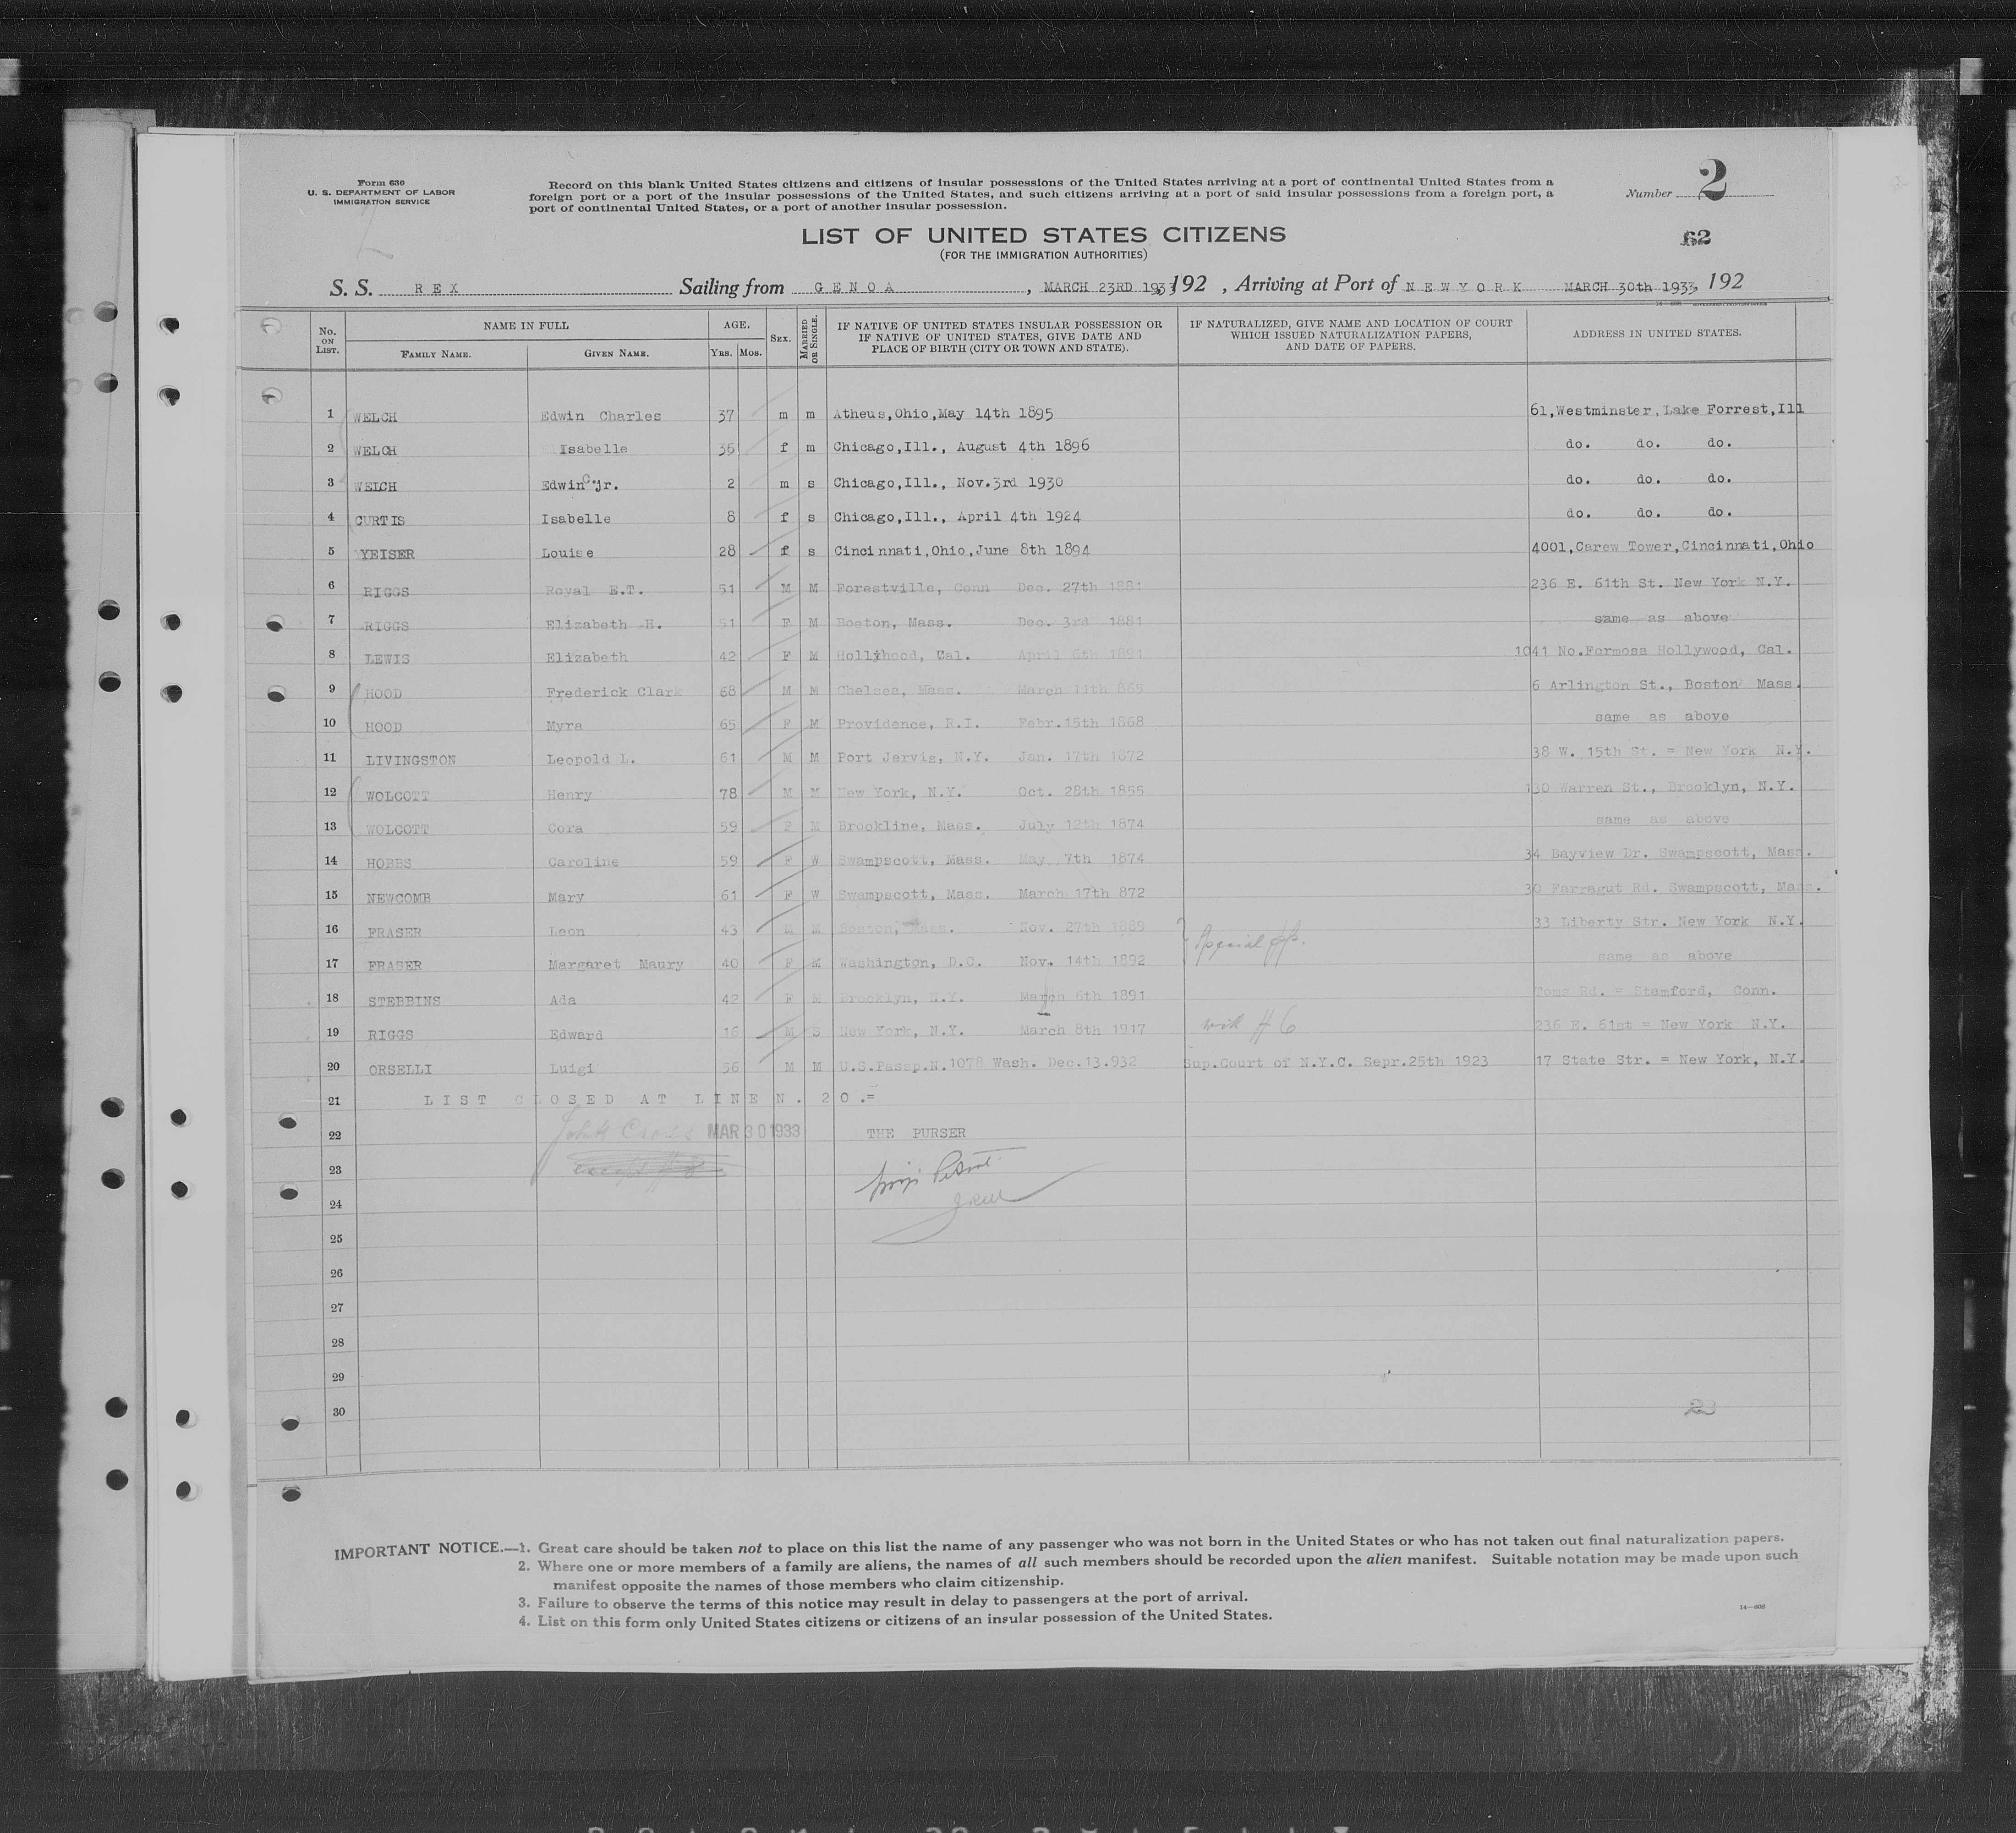 Form 630
U. S. DEPARTMENT OF LABOR
IMMIGRATION SERVICE
Record on this blank United States citizens and citizens of insular possessions of the United States arriving at a port of continental United States from a
foreign port or a port of the insular possessions of the United States, and such citizens arriving at a port of said insular possessions from a foreign port, a
port of continental United States, or a port of another insular possession.
Number 2
62
LIST OF UNITED STATES CITIZENS
(FOR THE IMMIGRATION AUTHORITIES)
S. S. REX Sailing from GENOA, MARCH 23RD 1933, 192 , Arriving at Port of NEW YORK MARCH 30th 1933, 192
No. ON LIST. NAME IN FULL FAMILY NAME. GIVEN NAME. AGE. YRS. MOS. SEX. MARRIED OR SINGLE. IF NATIVE OF UNITED STATES INSULAR POSSESSION OR IF NATIVE OF UNITED STATES, GIVE DATE AND PLACE OF BIRTH (CITY OR TOWN AND STATE). IF NATURALIZED, GIVE NAME AND LOCATION OF COURT WHICH ISSUED NATURALIZATION PAPERS, AND DATE OF PAPERS. ADDRESS IN UNITED STATES.
1 WELCH Edwin Charles 37 m m Atheus,Ohio,May 14th 1895 61,Westminster,Lake Forrest,Ill
2 WELCH Isabelle 36 f m Chicago,Ill., August 4th 1896 do. do. do.
3 WELCH Edwin C. jr. 2 m s Chicago,Ill., Nov.3rd 1930 do. do. do.
4 CURTIS Isabelle 8 f s Chicago,Ill., April 4th 1924 do. do. do.
5 YEISER Louise 28 f s Cincinnati,Ohio,June 8th 1894 4001,Carew Tower,Cincinnati,Ohio
6 RIGGS Royal E.T. 51 M M Forestville, Conn Dec. 27th 1881 236 E. 61th St. New York N.Y.
7 RIGGS Elizabeth H. 51 F M Boston, Mass. Dec. 3rd 1881 same as above
8 LEWIS Elizabeth 42 F M Hollyhood, Cal. April 6th 1891 1041 No.Formosa Hollywood, Cal.
9 HOOD Frederick Clark 68 M M Chelsea, Mass. March 11th 865 6 Arlington St., Boston Mass.
10 HOOD Myra 65 F M Providence, R.I. Febr.15th 1868 same as above
11 LIVINGSTON Leopold L. 61 M M Port Jervis, N.Y. Jan. 17th 1872 38 W. 15th St. = New York N.Y.
12 WOLCOTT Henry 78 M M New York, N.Y. Oct. 28th 1855 130 Warren St., Brooklyn, N.Y.
13 WOLCOTT Cora 59 F M Brookline, Mass. July 12th 1874 same as above
14 HOBBS Caroline 59 F W Swampscott, Mass. May 7th 1874 34 Bayview Dr. Swampscott, Mass.
15 NEWCOMB Mary 61 F W Swampscott, Mass. March 17th 872 30 Farragut Rd. Swampscott, Mass.
16 FRASER Leon 43 M M Boston, Mass. Nov. 27th 1889 33 Liberty Str. New York N.Y.
Special pp.
17 FRASER Margaret Maury 40 F M Washington, D.C. Nov. 14th 1892 same as above
18 STEBBINS Ada 42 F M Brooklyn, N.Y. March 6th 1891 Toms Rd. = Stamford, Conn.
19 RIGGS Edward 16 M S New York, N.Y. March 8th 1917 with # 6 236 E. 61st = New York N.Y.
20 ORSELLI Luigi 56 M M U.S.Passp.N.1078 Wash. Dec.13.932 Sup.Court of N.Y.C. Sepr.25th 1923 17 State Str. = New York, N.Y.
21 LIST CLOSED AT LINE N. 20.=
22 John Cross MAR 30 1933 THE PURSER
23
24
25
26
27
28
29
30
IMPORTANT NOTICE.—1. Great care should be taken not to place on this list the name of any passenger who was not born in the United States or who has not taken out final naturalization papers.
2. Where one or more members of a family are aliens, the names of all such members should be recorded upon the alien manifest. Suitable notation may be made upon such
manifest opposite the names of those members who claim citizenship.
3. Failure to observe the terms of this notice may result in delay to passengers at the port of arrival.
4. List on this form only United States citizens or citizens of an insular possession of the United States.
14—608